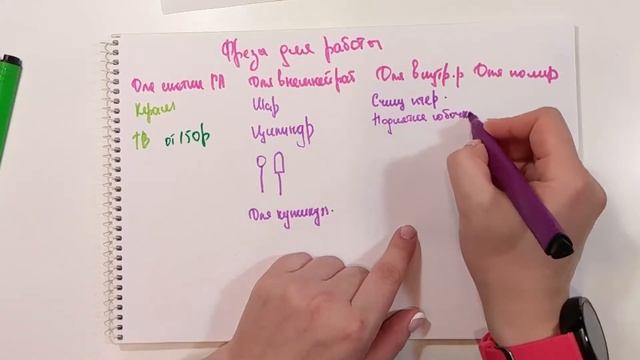 Фреза для работы
Для снятия ГЛ
Керам
ТВ от 150р
Для внешней раб
Шар
Цилиндр
Для кутикул.
Для внутр. р
Счищ птер.
Поднятия юбочки
Для полир